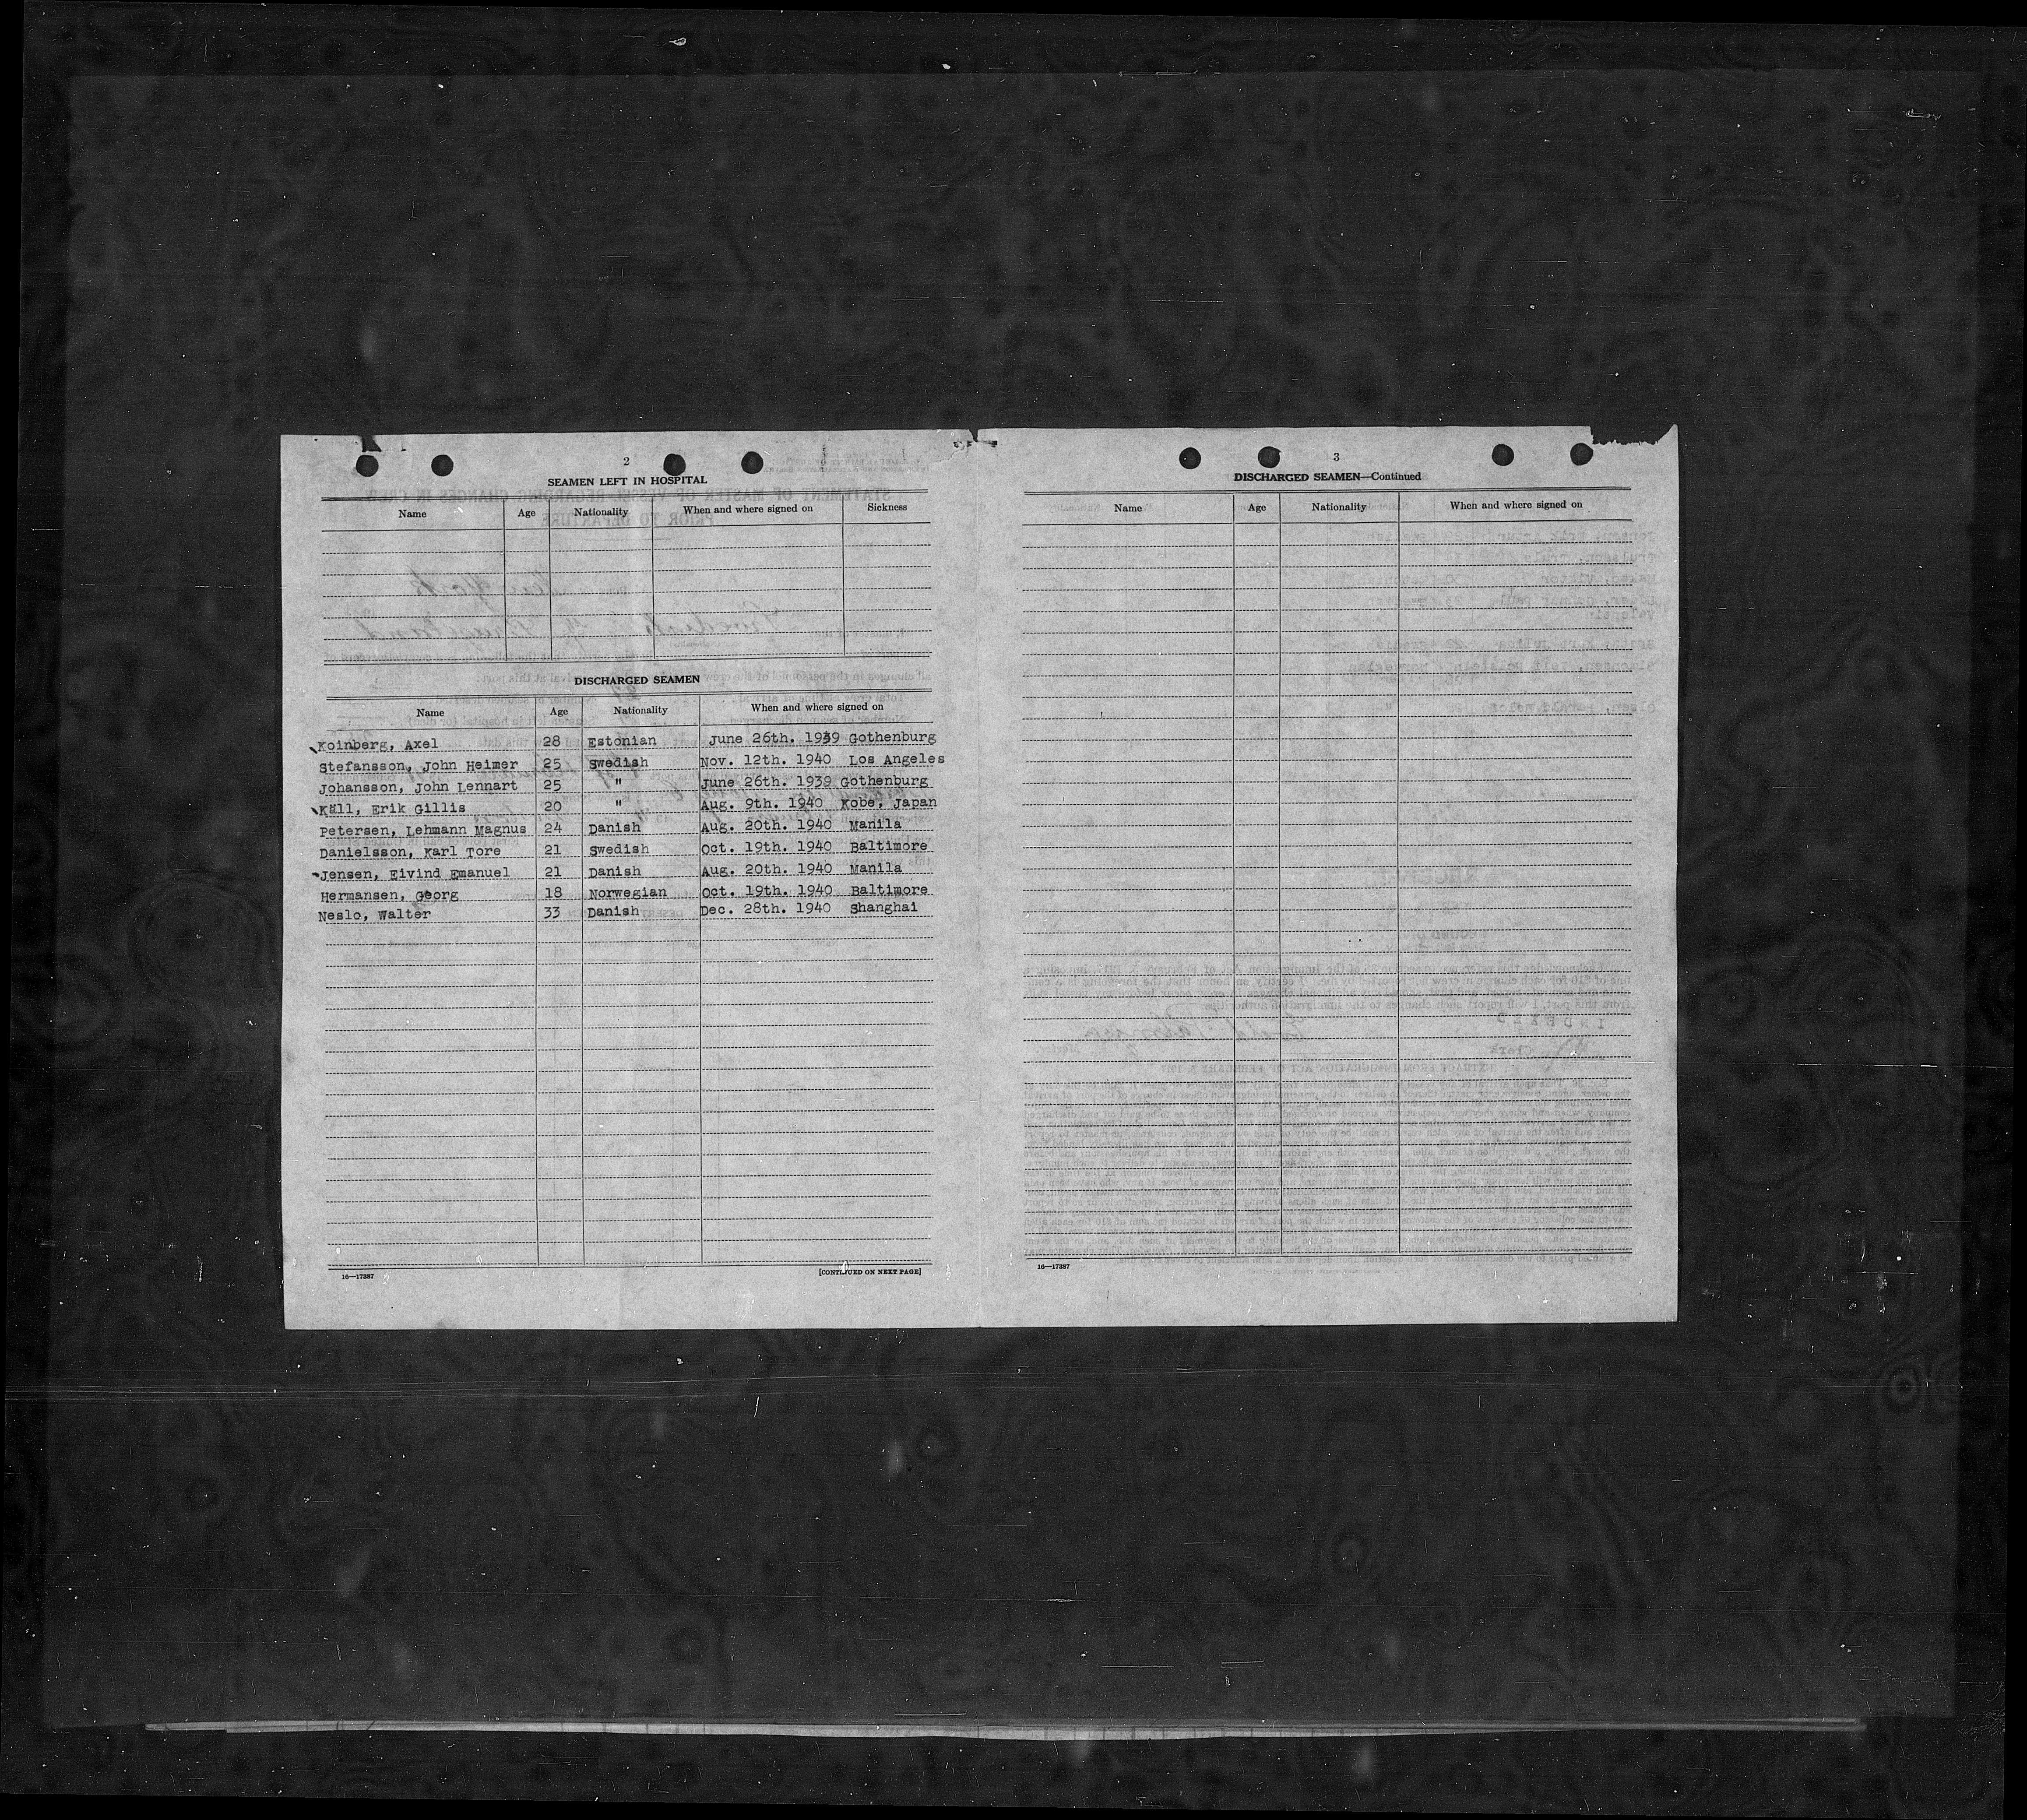 2
SEAMEN LEFT IN HOSPITAL
Name Age Nationality When and where signed on Sickness
DISCHARGED SEAMEN
Name Age Nationality When and where signed on
Koinberg, Axel 28 Estonian June 26th. 1939 Gothenburg
Stefansson, John Heimer 25 Swedish Nov. 12th. 1940 Los Angeles
Johansson, John Lennart 25 " June 26th. 1939 Gothenburg
Käll, Erik Gillis 20 " Aug. 9th. 1940 Kobe, Japan
Petersen, Lehmann Magnus 24 Danish Aug. 20th. 1940 Manila
Danielsson, Karl Tore 21 Swedish Oct. 19th. 1940 Baltimore
Jensen, Eivind Emanuel 21 Danish Aug. 20th. 1940 Manila
Hermansen, Georg 18 Norwegian Oct. 19th. 1940 Baltimore
Neslo, Walter 33 Danish Dec. 28th. 1940 Shanghai
16—17387 [CONTINUED ON NEXT PAGE]
3
DISCHARGED SEAMEN—Continued
Name Age Nationality When and where signed on
16—17387